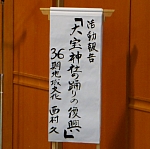 活動報告
「大宝神社の踊りの復興」
36期地域文化 西村久